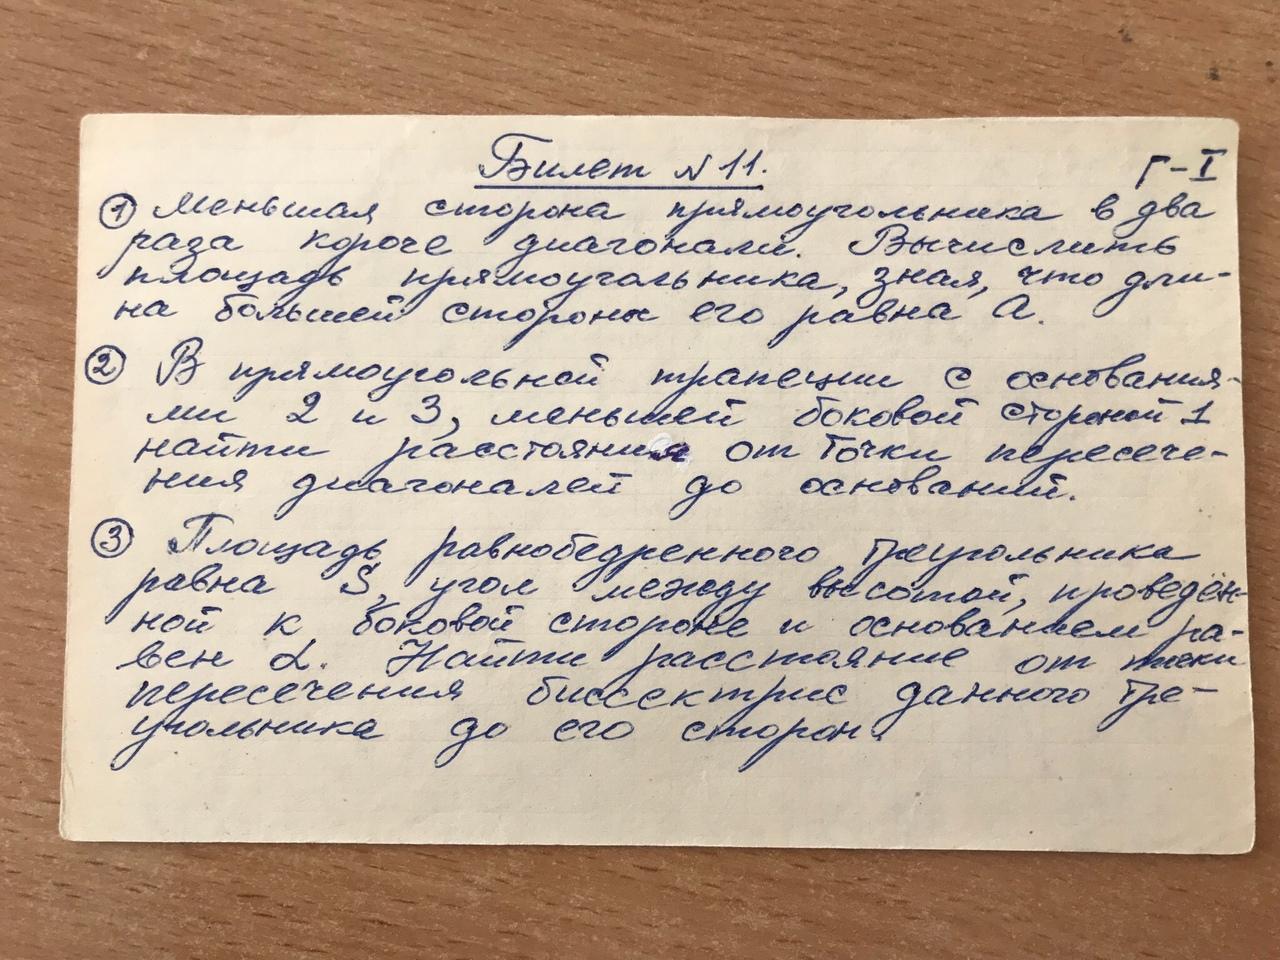 Билет № 11.
Г-I
① Меньшая сторона прямоугольника в два
раза короче диагонали. Вычислить
площадь прямоугольника, зная, что дли-
на большей стороны его равна а.
② В прямоугольной трапеции с основания-
ми 2 и 3, меньшей боковой стороной 1
найти расстояния от точки пересече-
ния диагоналей до оснований.
③ Площадь равнобедренного треугольника
равна S, угол между высотой, проведён-
ной к боковой стороне и основанием ра-
вен α. Найти расстояние от точки
пересечения биссектрис данного тре-
угольника до его сторон.